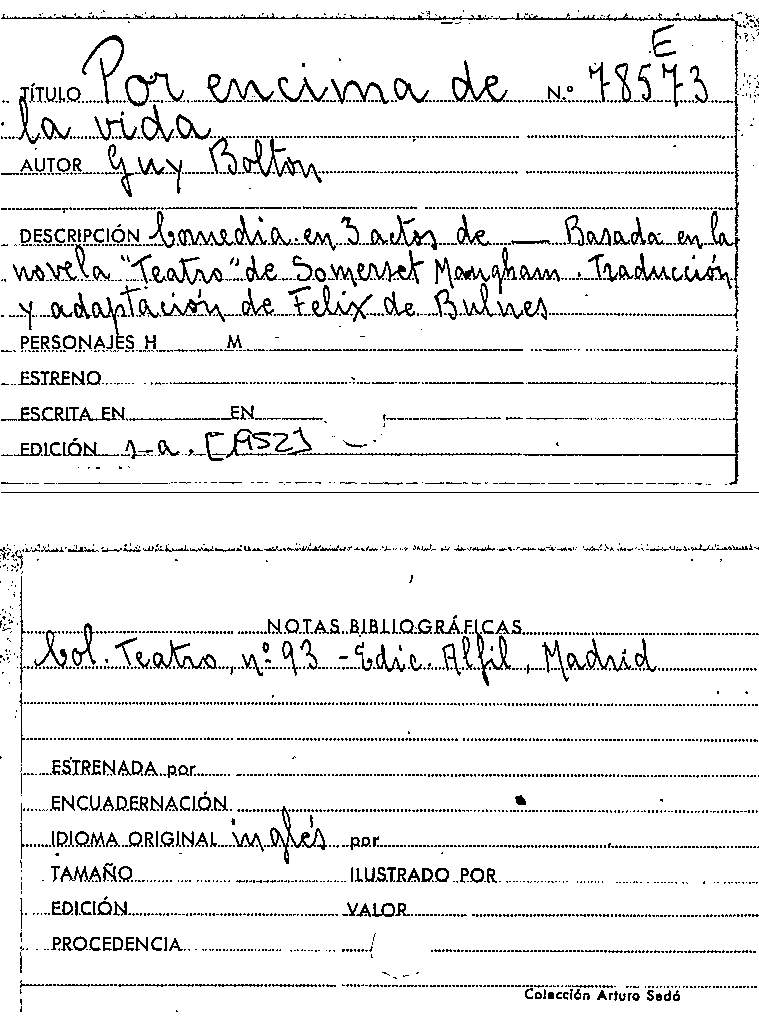 E
TÍTULO Por encima de N.º 78573
la vida
AUTOR Guy Bolton
DESCRIPCIÓN Comedia en 3 actos de — Basada en la
novela "Teatro" de Somerset Mangham. Traducción
y adaptación de Felix de Bulnes
PERSONAJES H M
ESTRENO
ESCRITA EN EN
EDICIÓN s-a. [1952]
NOTAS BIBLIOGRÁFICAS
Col. Teatro, nº 93 - Edic. Alfil, Madrid
ESTRENADA por
ENCUADERNACIÓN
IDIOMA ORIGINAL inglés por
TAMAÑO ILUSTRADO POR
EDICIÓN VALOR
PROCEDENCIA
Colección Arturo Sedó